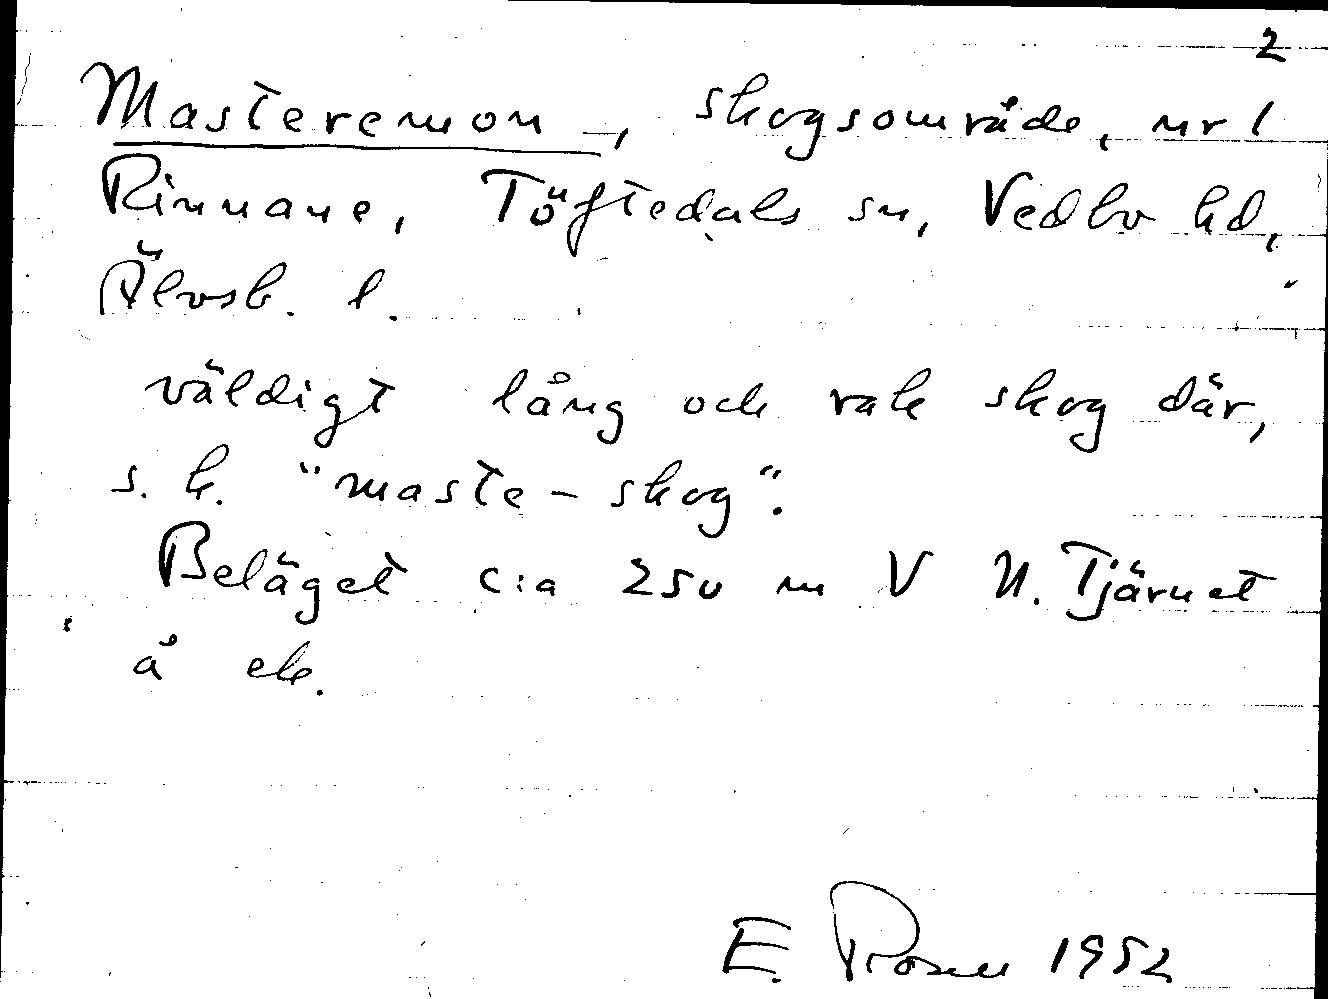 2
Masteremon, skogsområde, nr 1
Rinnane, Töftedals sn, Vedbo hd,
Älvsb. l.
väldigt lång och rak skog där,
s. k. "maste-skog".
Beläget c:a 250 m V N. Tjärnet
å ek.
E. Rosen 1952